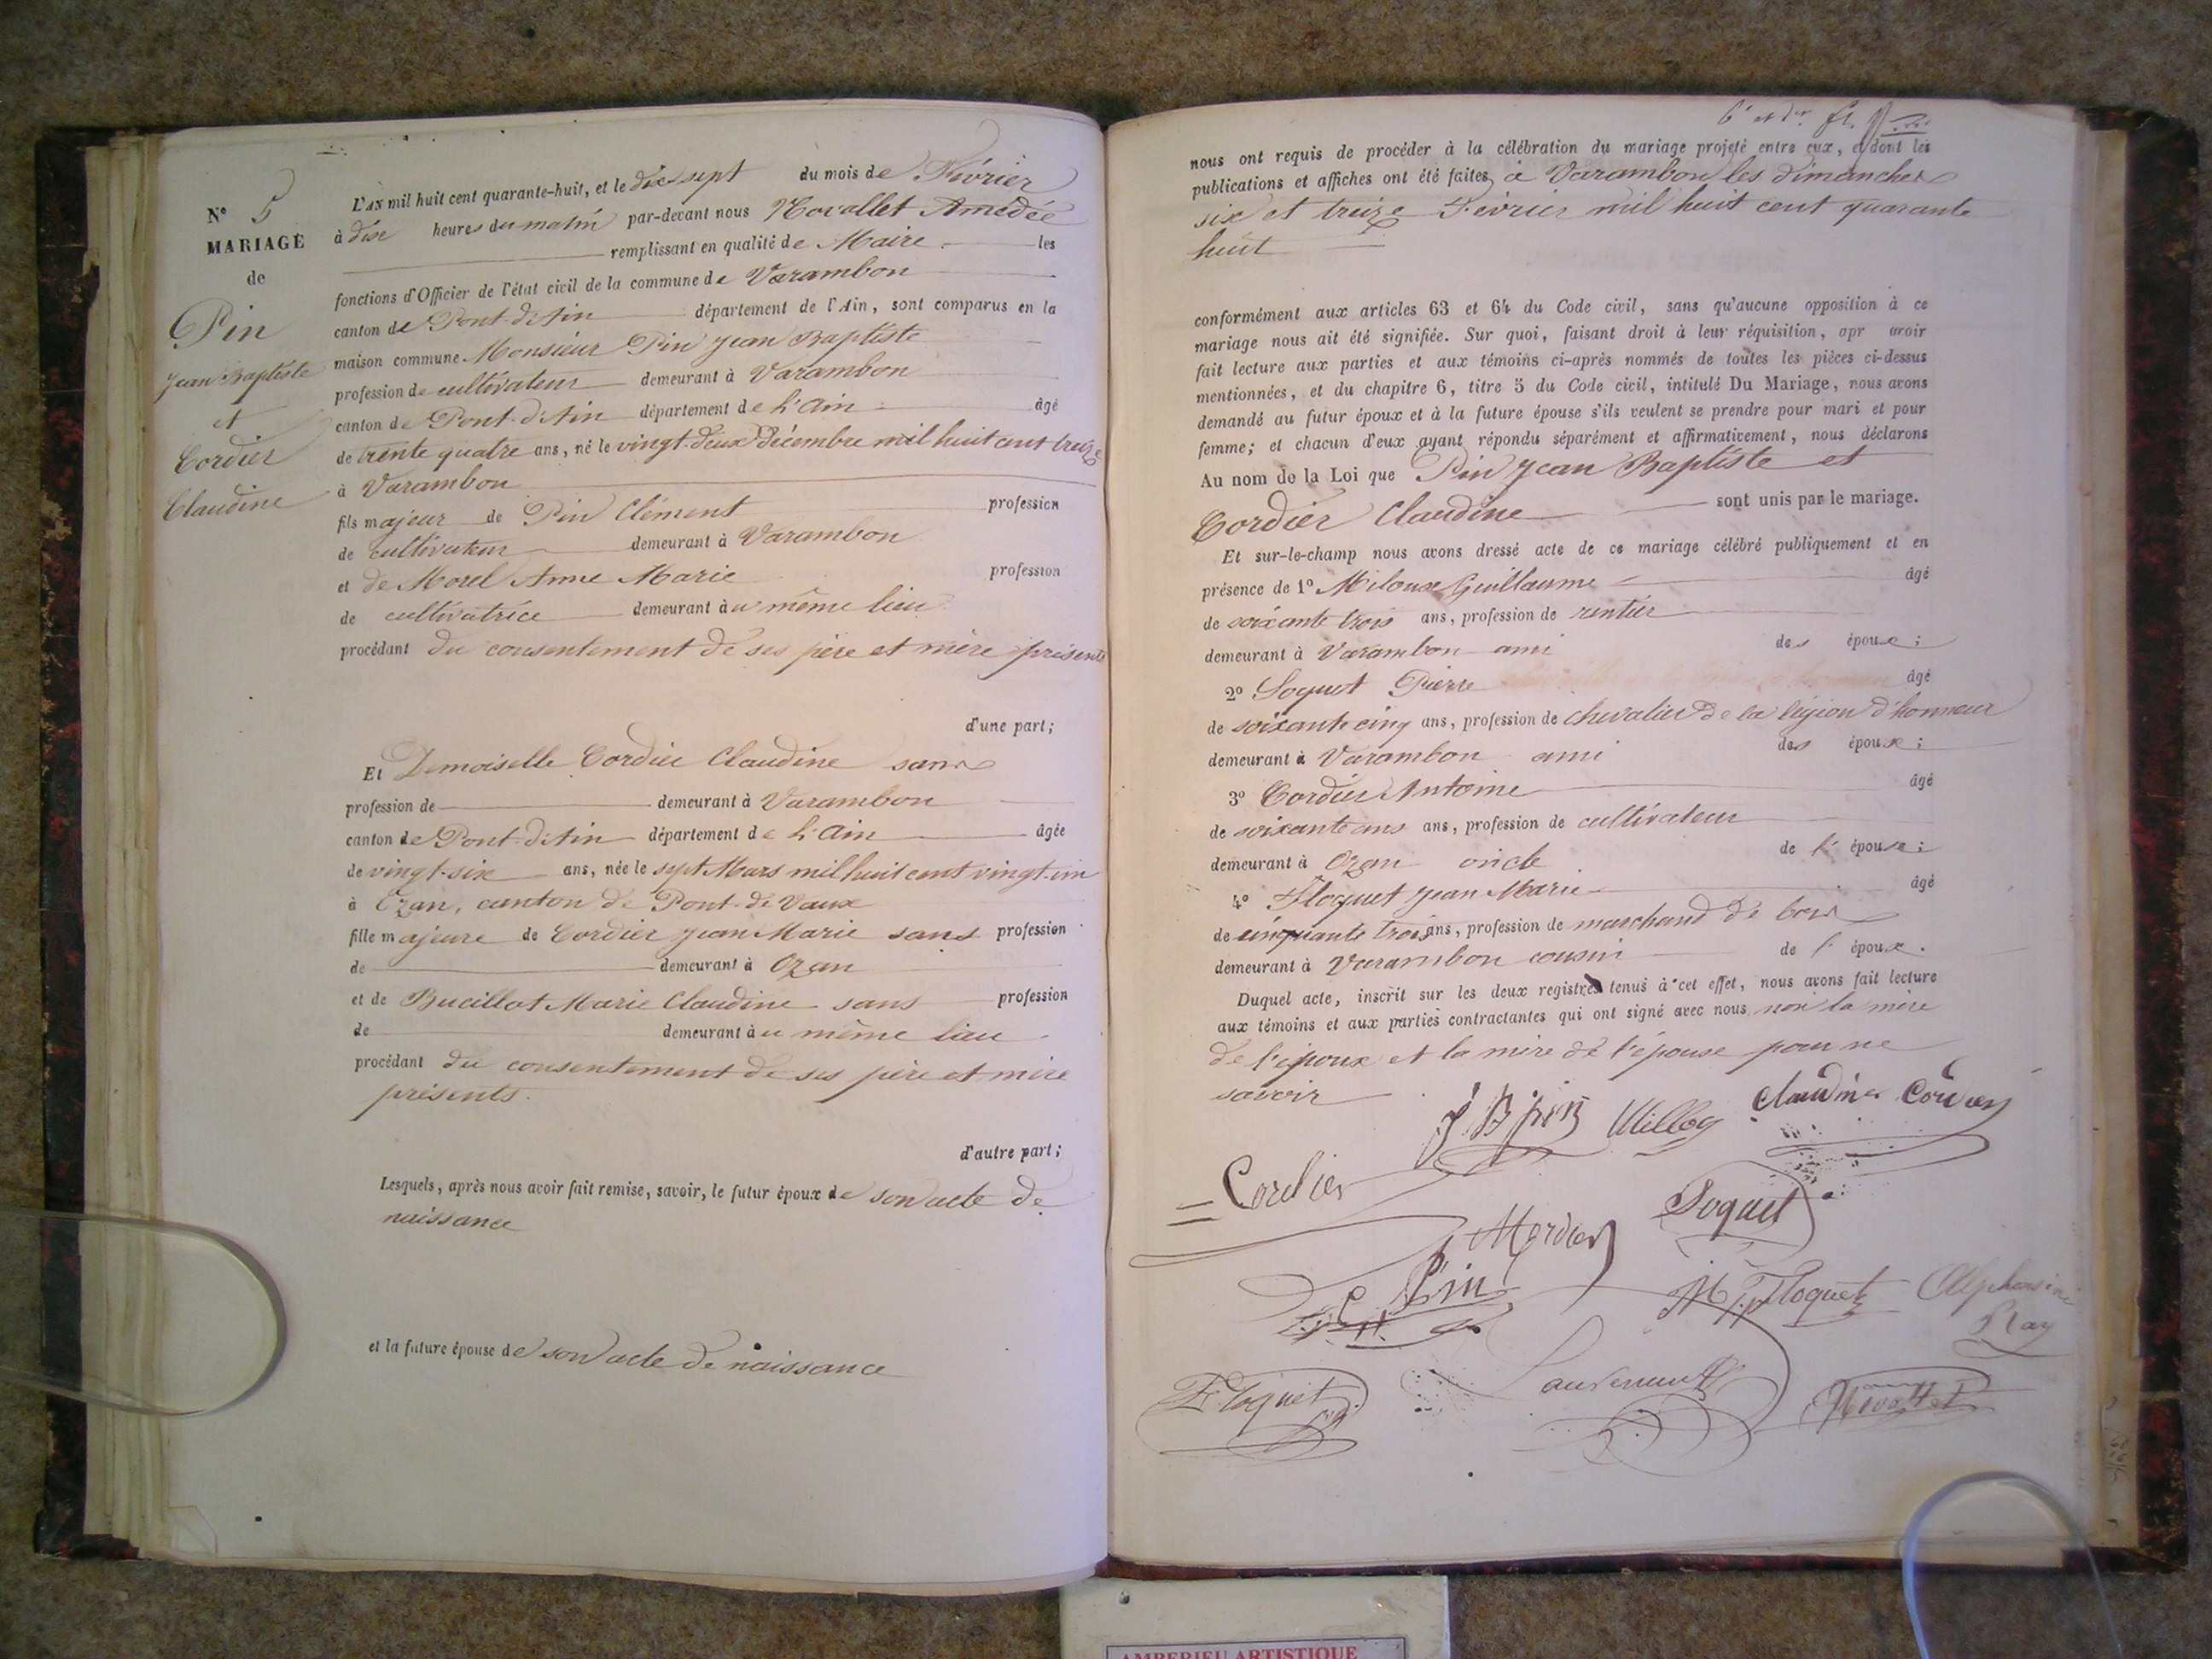 N° 5
MARIAGE
de
Pin
Jean Baptiste
et
Cordier
Claudine
L'AN mil huit cent quarante-huit, et le dix sept du mois de Février
à dix heures du matin par-devant nous Novallet Amédée
remplissant en qualité de Maire les
fonctions d'Officier de l'état civil de la commune de Varambon
canton de Pont-d'Ain département de l'Ain, sont comparus en la
maison commune. Monsieur Pin Jean Baptiste
profession de cultivateur demeurant à Varambon
canton de Pont-d'Ain département de l'Ain âgé
de trente quatre ans, né le vingt-deux Décembre mil huit cent treize
à Varambon
fils majeur de Pin Clément profession
de cultivateur demeurant à Varambon
et de Morel Anne Marie profession
de cultivatrice demeurant au même lieu
procédant du consentement de ses père et mère présents
d'une part;
Et Demoiselle Cordier Claudine sans
profession de demeurant à Varambon
canton de Pont-d'Ain département de l'Ain âgée
de vingt-six ans, née le sept Mars mil huit cent vingt-un
à Ozan, canton de Pont-de-Vaux
fille majeure de Cordier Jean Marie sans profession
de demeurant à Ozan
et de Bucillot Marie Claudine sans profession
de demeurant au même lieu
procédant du consentement de ses père et mère
présents.
d'autre part;
Lesquels, après nous avoir fait remise, savoir, le futur époux de son acte de
naissance
et la future épouse de son acte de naissance
6e et der ft.
nous ont requis de procéder à la célébration du mariage projeté entre eux, et dont les
publications et affiches ont été faites à Varambon les dimanches
six et treize Février mil huit cent quarante
huit
conformément aux articles 63 et 64 du Code civil, sans qu'aucune opposition à ce
mariage nous ait été signifiée. Sur quoi, faisant droit à leur réquisition, apr avoir
fait lecture aux parties et aux témoins ci-après nommés de toutes les pièces ci-dessus
mentionnées, et du chapitre 6, titre 5 du Code civil, intitulé Du Mariage, nous avons
demandé au futur époux et à la future épouse s'ils veulent se prendre pour mari et pour
femme; et chacun d'eux ayant répondu séparément et affirmativement, nous déclarons
Au nom de la Loi que Pin Jean Baptiste et
Cordier Claudine sont unis par le mariage.
Et sur-le-champ nous avons dressé acte de ce mariage célébré publiquement et en
présence de 1° Miloux Guillaume âgé
de soixante trois ans, profession de rentier
demeurant à Varambon ami des époux;
2° Soquet Pierre âgé
de soixante cinq ans, profession de chevalier de la légion d'honneur
demeurant à Varambon ami des époux;
3° Cordier Antoine âgé
de soixante ans ans, profession de cultivateur
demeurant à Ozan oncle de l'épouse;
4° Floquet Jean Marie âgé
de cinquante trois ans, profession de marchand de bois
demeurant à Varambon cousin de l'époux.
Duquel acte, inscrit sur les deux registres tenus à cet effet, nous avons fait lecture
aux témoins et aux parties contractantes qui ont signé avec nous non la mère
de l'époux et la mère de l'épouse pour ne
savoir
J B pin Claudine Cordier
Cordier Soquet
Pin Floquet Alphonsine
Ray
Floquet Novallet
AMBERIEU ARTISTIQUE